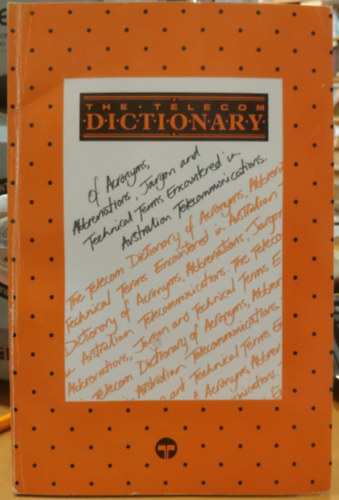 THE·TELECOM
·DICTIONARY·
of Acronyms,
Abbreviations, Jargon and
Technical Terms Encountered in
Australian Telecommunications.
The Telecom Dictionary of Acronyms, Abbrevi
Technical Terms Encountered in Australian
Dictionary of Acronyms, Abbreviations, Jargon
in Australian Telecommunications. The Teleco
Abbreviations, Jargon and Technical Terms E
Telecom Dictionary of Acronyms, Abbrev
in Australian Telecommunications.
and Technical Terms En
of Acronyms, Abbrevi